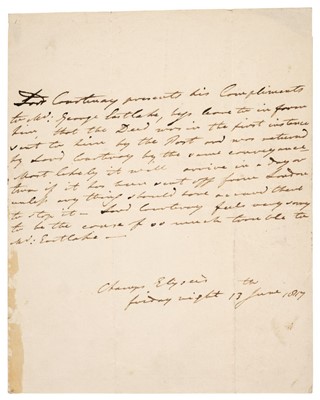 Lord Courtenay presents his Compliments
to Mr. George Eastlake, begs leave to inform
him, that the Deed was in the first instance
sent to him by the Post and was returned
by Lord Courtenay by the same conveyance
Most likely it will arrive in a day or
two if it has been sent off from London
unless any thing should have occurred there
to stop it – Lord Courtenay feels very sorry
to be the cause of so much trouble to
Mr. Eastlake –
Champs Elysees
friday night 13th June